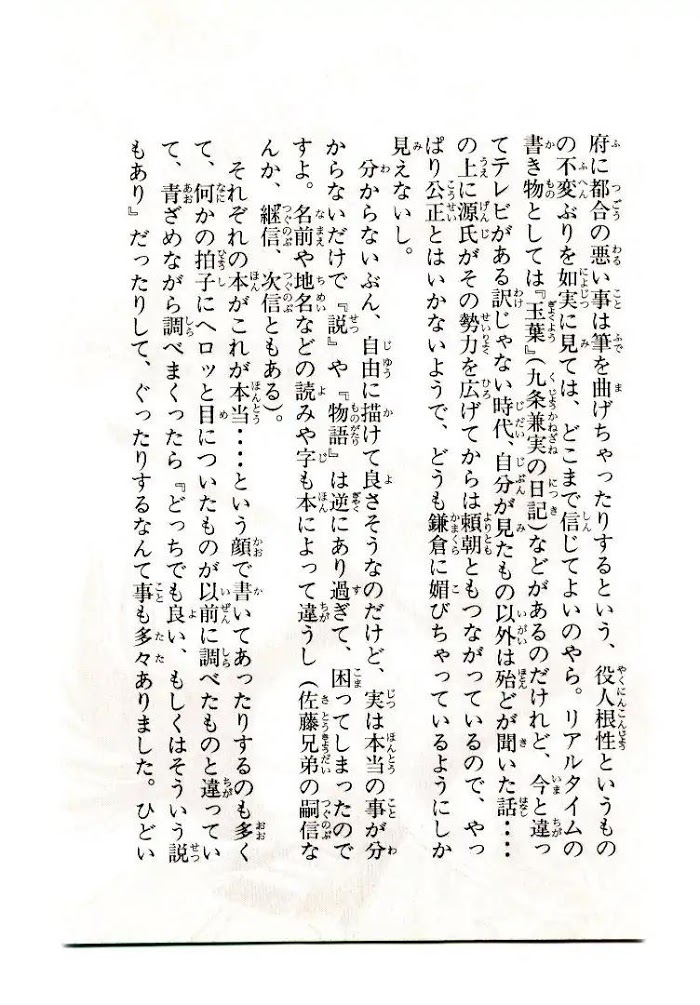 府に都合の悪い事は筆を曲げちゃったりするという、役人根性というもの
の不変ぶりを如実に見ては、どこまで信じてよいのやら。リアルタイムの
書き物としては『玉葉』(九条兼実の日記)などがあるのだけれど、今と違っ
てテレビがある訳じゃない時代、自分が見たもの以外は殆どが聞いた話‥‥
の上に源氏がその勢力を広げてからは頼朝ともつながっているので、やっ
ぱり公正とはいかないようで、どうも鎌倉に媚びちゃっているようにしか
見えないし。
分からないぶん、自由に描けて良さそうなのだけど、実は本当の事が分
からないだけで『説』や『物語』は逆にあり過ぎて、困ってしまったので
すよ。名前や地名などの読みや字も本によって違うし(佐藤兄弟の嗣信な
んか、継信、次信ともある)。
それぞれの本がこれが本当‥‥という顔で書いてあったりするのも多く
て、何かの拍子にヘロッと目についたものが以前に調べたものと違ってい
て、青ざめながら調べまくったら『どっちでも良い、もしくはそういう説
もあり』だったりして、ぐったりするなんて事も多々ありました。ひどい